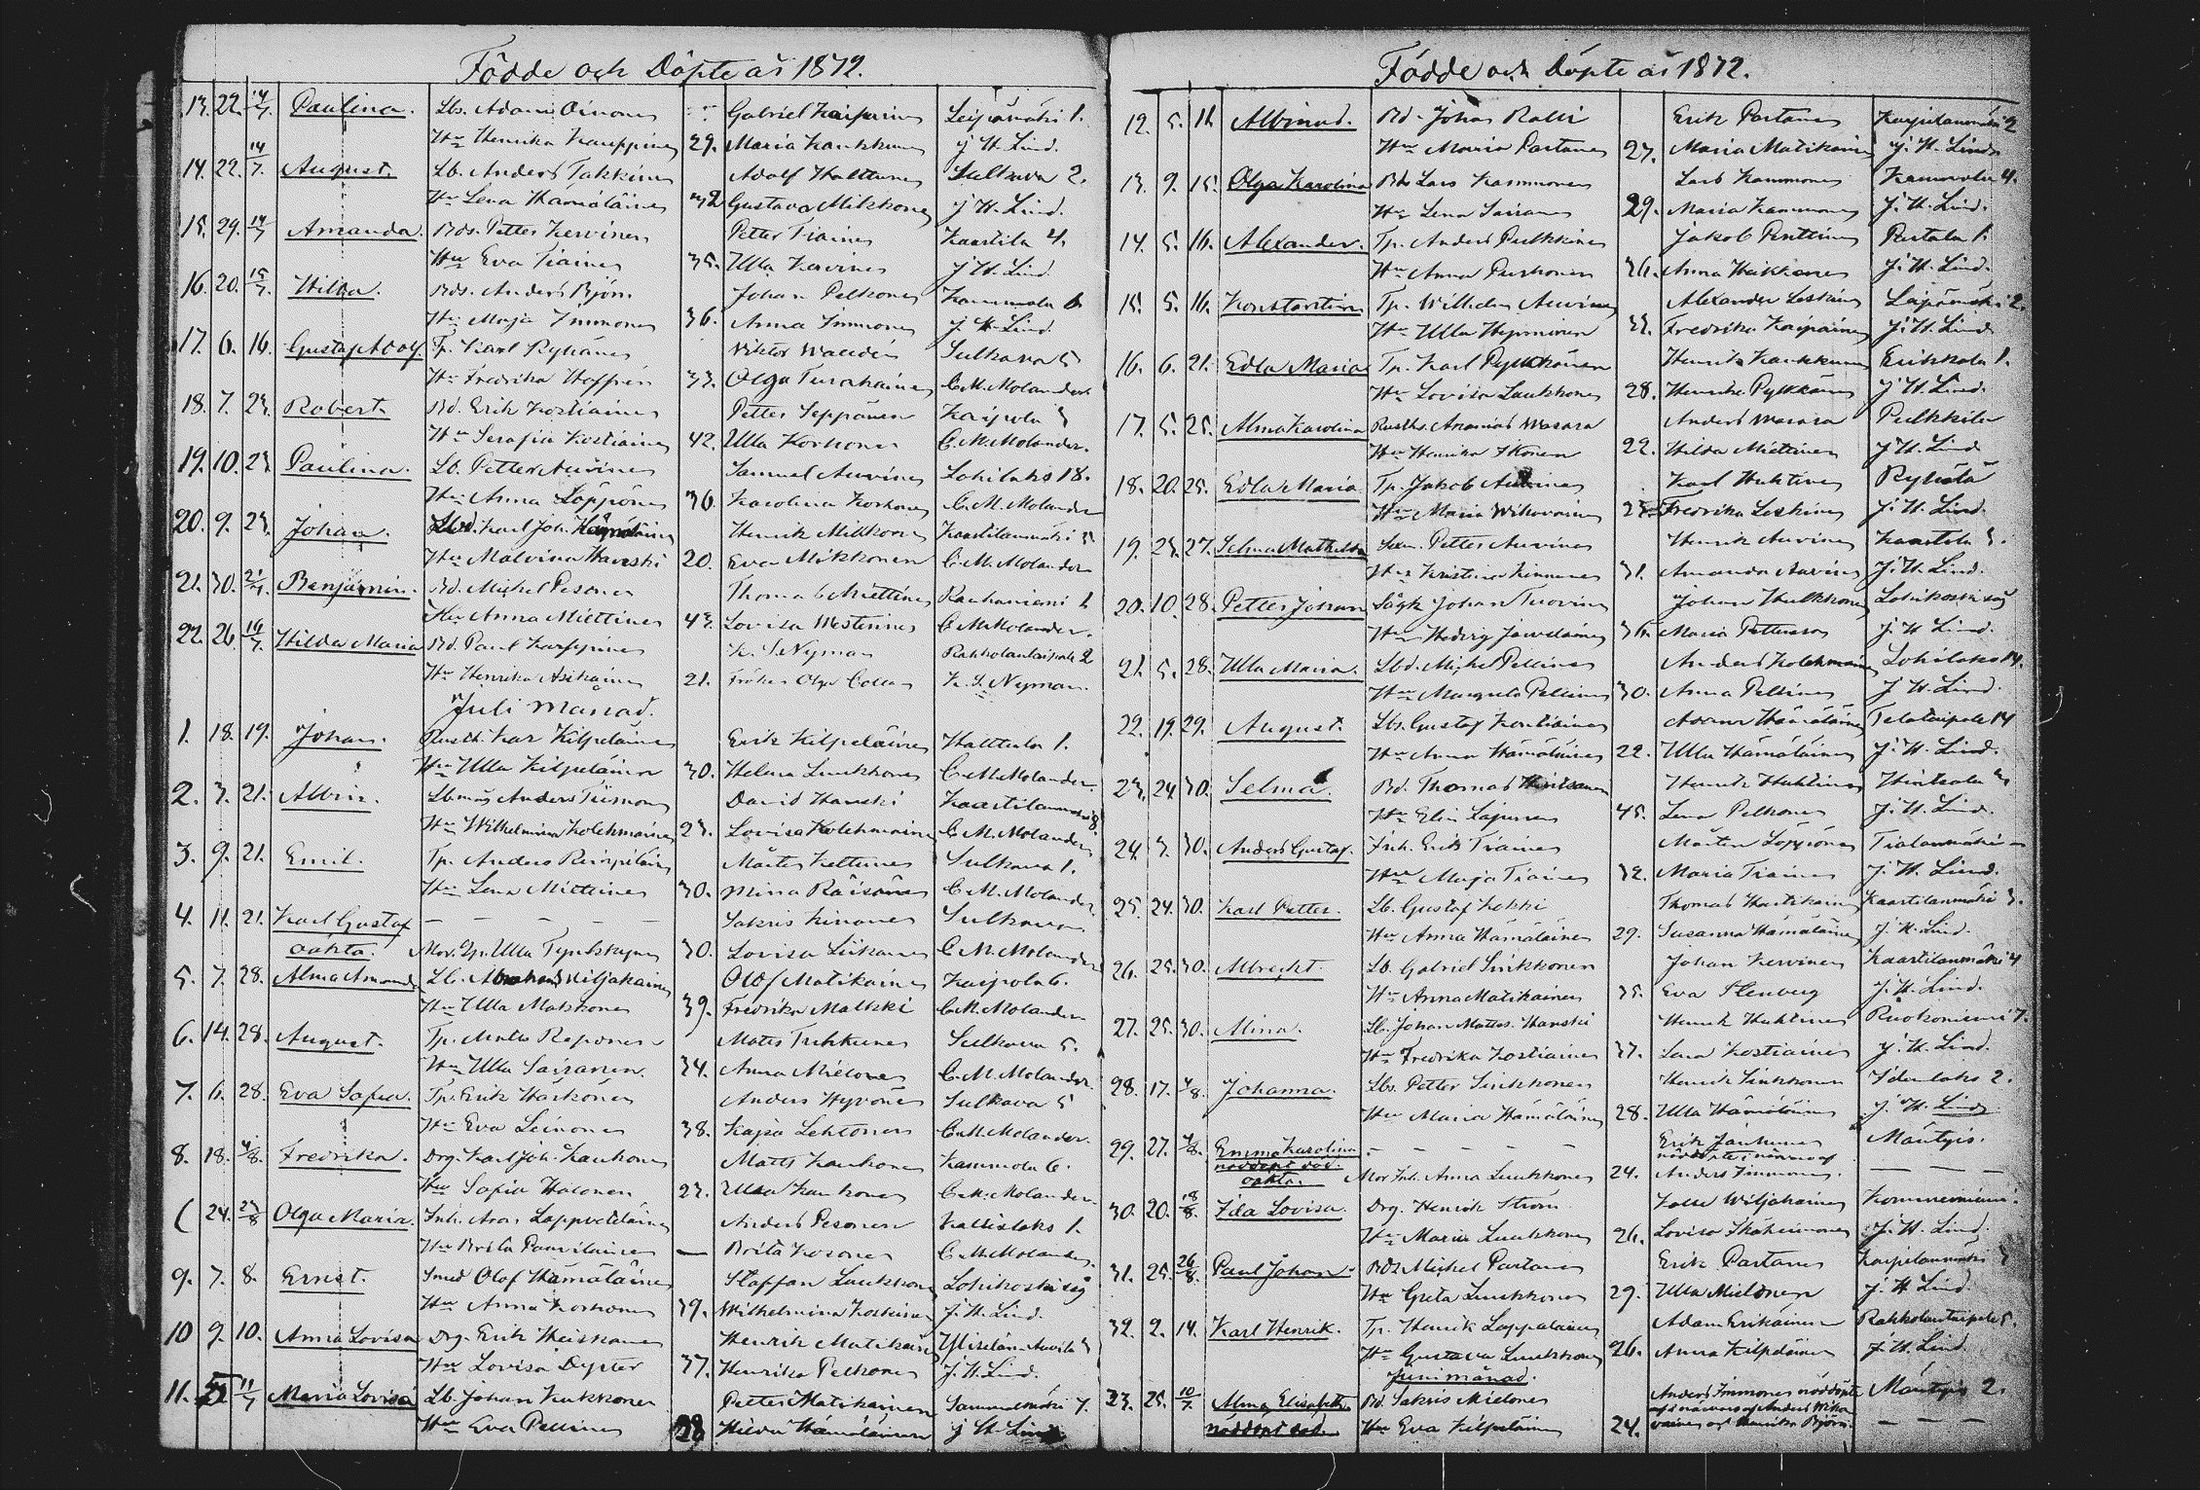 Födde och Döpte år 1872.
13. 22. 14/7. Paulina. Lbs. Adam Oinonen Gabriel Kaipainen Leipämäki 1.
Hu Henrika Kauppinen 29. Maria Kaukkunen J. H. Lind.
14. 22. 14/7. August. Lb. Anders Takkinen Adolf Halttunen Sulkava 2.
Hu Lena Hämäläinen 32 Gustava Mikkonen J. H. Lind.
15. 29. 14/7 Amanda. Bds. Petter Kervinen Petter Tiainen Kaartila 4.
Hu Eva Tiainen 35. Ulla Kervinen J. H. Lind
16. 20. 15/7. Hilda. Bds. Anders Björn Johan Pelkonen Kammola 6
Hu Maja Immonen 36. Anna Immonen J. H. Lind
17. 6. 16. Gustaf Adolf. Tp. Karl Ryhänen Viktor Sulkava 5
Hu Fredrika Hoffrén 33. Olga Turakainen C. M. Molander
18. 7. 23. Robert. Bd. Erik Kostiainen Petter Seppänen Kaipola 3
Hu Serafia Kostiainen 42. Ulla Korhonen C. M. Molander.
19. 10. 23 Paulina. Lb. Petter Auvinen Samuel Auvinen Lohilaks 18.
Hu Anna Löppönen 30. Karolina Korhonen C. M. Molander
20. 9. 23. Johan. Karl Joh. Hämäläinen Henrik Mikkonen Kaartilanmäki 5
Hu Malvina Hanski 20. Eva Mikkonen C. M. Molander
21. 30. Benjamin. Bd. Michel Pesonen Thomas Miettinen Rauhaniemi 2
Hu Anna Miettinen 43. Lovisa Westerinen C. M. Molander.
22. 26. 16/7. Hilda Maria Bd. Paul Karppinen K. S. Nyman Rahkolantaipale 2
Hu Henrika Asikainen 21. Fröken Olga K. S. Nyman.
Juli månad.
1. 18. 19. Johan. Rusth. Kilpeläinen Erik Kilpeläinen Halttula 1.
Hu Ulla Kilpeläinen 30. Helena Luukkonen C. M. Molander.
2. 3. 21. Albin. Lbmåg Anders Tiimonen David Hanski Kaartilanmäki 8.
Hu Wilhelmina Kolehmainen 23. Lovisa Kolehmainen C. M. Molander
3. 9. 21. Emil. Tp. Anders Rimpiläinen Mårten Kettunen Sulkava 1.
Hu Lena Miettinen 30. Mina Räisänen C. M. Molander.
4. 11. 21. Karl Gustaf — — — Sakris Kinanen Sulkava
oäkta. Mor. Ulla 30. Lovisa Liikanen C. M. Molander
5. 7. 28. Alma Amanda Lb. Abraham Viljakainen Olof Matikainen Kaipola 6.
Hu Ulla Makkonen 39. Fredrika Malkki C. M. Molander
6. 14. 28. August. Tp. Matts Reponen Matts Tuhkunen Sulkava 5.
Hu Ulla Sairanen 34. Anna Mielonen C. M. Molander.
7. 6. 28. Eva Sofia. Tp. Erik Härkönen Anders Hyvönen Sulkava 5
Hu Eva Leinonen 38. Kajsa Lehtonen C. M. Molander.
8. 18. 4/8. Fredrika. Drg. Karl Joh. Kauhonen Matts Kauhonen Kammola 6.
Hu Sofia Halonen 23. Ulla Kauhonen C. M. Molander.
( 24. 23/8 Olga Maria. Inh. Aron Lappveteläinen Anders Pesonen Kallislaks 1.
Hu Brita Paavilainen — Brita Kosonen C. M. Molander
9. 7. 8. Ernst. Smed Olof Hämäläinen Staffan Luukkonen Lohikoski såg
Hu Anna Korhonen 39. Wilhelmina Korhonen J. H. Lind.
10 9. 10. Anna Lovisa Drg. Erik Heiskanen Henrik Matikainen
Hu Lovisa Dyster 37. Henrika Pelkonen J. H. Lind.
11. 11/7 Maria Lovisa Lb. Johan Kukkonen Petter Matikainen Sammalmäki 7.
Hu Eva Pellinen 28 Hilda Hämäläinen J. H. Lind
Födde och Döpte år 1872.
12. 5. 11. Albinad. Bd. Johan Ralli Erik Partanen Karjulanmäki 2
Hu Maria Partanen 27. Maria Matikainen J. H. Lind
13. 9. 15. Olga Karolina Bds Lars Kammonen Lars Kammonen Kammola 4.
Hu Lena Sairanen 29. Maria Kammonen J. H. Lind.
14. 5. 16. Alexander. Tp. Anders Pulkkinen Jakob Penttinen Partala 1.
Hu Anna Purhonen 36. Anna Häkkänen J. H. Lind.
15. 5. 16. Konstantin Tp. Wilhelm Auvinen Alexander Leskinen Leipämäki 2.
Hu Ulla Heymonen 32. Fredrika Kaipainen J. H. Lind
16. 6. 21. Edla Maria Tp. Karl Pylkkänen Henrik Kaukkunen Eriskala 1.
Hu Lovisa Luukkonen 28. Henrika Pylkkänen J. H. Lind.
17. 5. 25. Alma Karolina Rusths. Ananias Wasara Anders Wasara Pulkkila
Hu Henrika Ikonen 22. Hilda Miettinen J. H. Lind
18. 20. 25. Edla Maria Tp. Jakob Auvinen Karl Huhtinen Ryhälä
Hu Maria Wihavainen 25. Fredrika Leskinen J. H. Lind.
19. 23. 27. Selma Mathilda Petter Auvinen Henrik Auvinen Kaartila 3.
Hu Kristina Kinnunen 31. Amanda Auvinen J. H. Lind.
20. 10. 28. Petter Johan Sågk Johan Tuovinen Johan Hulkkonen Lohikoski såg
Hu Hedvig Javelainen 36. Maria Petterson J. H. Lind.
21. 5. 28. Ulla Maria. Lbd. Michel Pellinen Anders Kolehmainen Lohilaks 14.
Hu Margreta Pellinen 30. Anna Pellinen J. H. Lind.
22. 19. 29. August. Lbs. Gustaf Kontiainen Adam Hämäläinen Telataipale 14
Hu Anna Hämäläinen 22. Ulla Hämäläinen J. H. Lind.
23. 24. 30. Selma. Bd. Thomas Henrik Huhtinen
Hu Elin 45. Lena Pelkonen J. H. Lind.
24. 3. 30. Anders Gustaf. Inh. Erik Tiainen Mårten Löppönen Tialanmäki —
Hu Maja Tiainen 32. Maria Tiainen J. H. Lind.
25. 24. 30. Karl Petter. Lb. Gustaf Kokki Thomas Hartikainen Kaartilanmäki 3.
Hu Anna Hämäläinen 29. Susanna Hämäläinen J. H. Lind.
26. 25. 30. Albrecht. Lb. Gabriel Sinkkonen Johan Kervinen Kaartilanmäki 4
Hu Anna Matikainen 35. Eva Stenberg J. H. Lind.
27. 25. 30. Mina. Lb. Johan Matts. Hanski Henrik Huhtinen Ruokoniemi 7.
Hu Fredrika Kostiainen 37. Lena Kostiainen J. H. Lind.
28. 17. 4/8. Johanna. Lbs. Petter Sinkkonen Henrik Sinkkonen Idanlaks 2.
Hu Maria Hämäläinen 28. Ulla Hämäläinen J. H. Lind
29. 27. 4/8. Emma Karolina — — — Erik Jänkinen Mäntyis.
nöddöpt död. nöddöpte i närvaro af
oäkta. Mor Inh. Anna Luukkonen 24. Anders Immonen. — — —
30. 20. 18/8. Ida Lovisa. Drg. Henrik Ström Kalle Wiljakainen Kommerniemi.
Hu Maria Luukkonen 26. Lovisa J. H. Lind.
31. 25. 26/8. Paul Johan. Bds Michel Partanen Erik Partanen Karjulanmäki 3
Hu Greta Luukkonen 29. Ulla Mielonen J. H. Lind.
32. 2. 14. Karl Henrik. Tp. Henrik Lappalainen Adam Erikäinen Rahkolantaipale 5.
Hu Gustava Luukkonen 26. Anna Kilpeläinen J. H. Lind
Juni månad.
23. 25. 10/7. Alma Elisabeth Bd. Sakris Mielonen Anders Immonen nöddöpte Mäntyis 2.
i närvaro af Anders Wihavainen och Henrika Björn.
nöddöpt död. Hu Eva Kilpeläinen 24. — — —